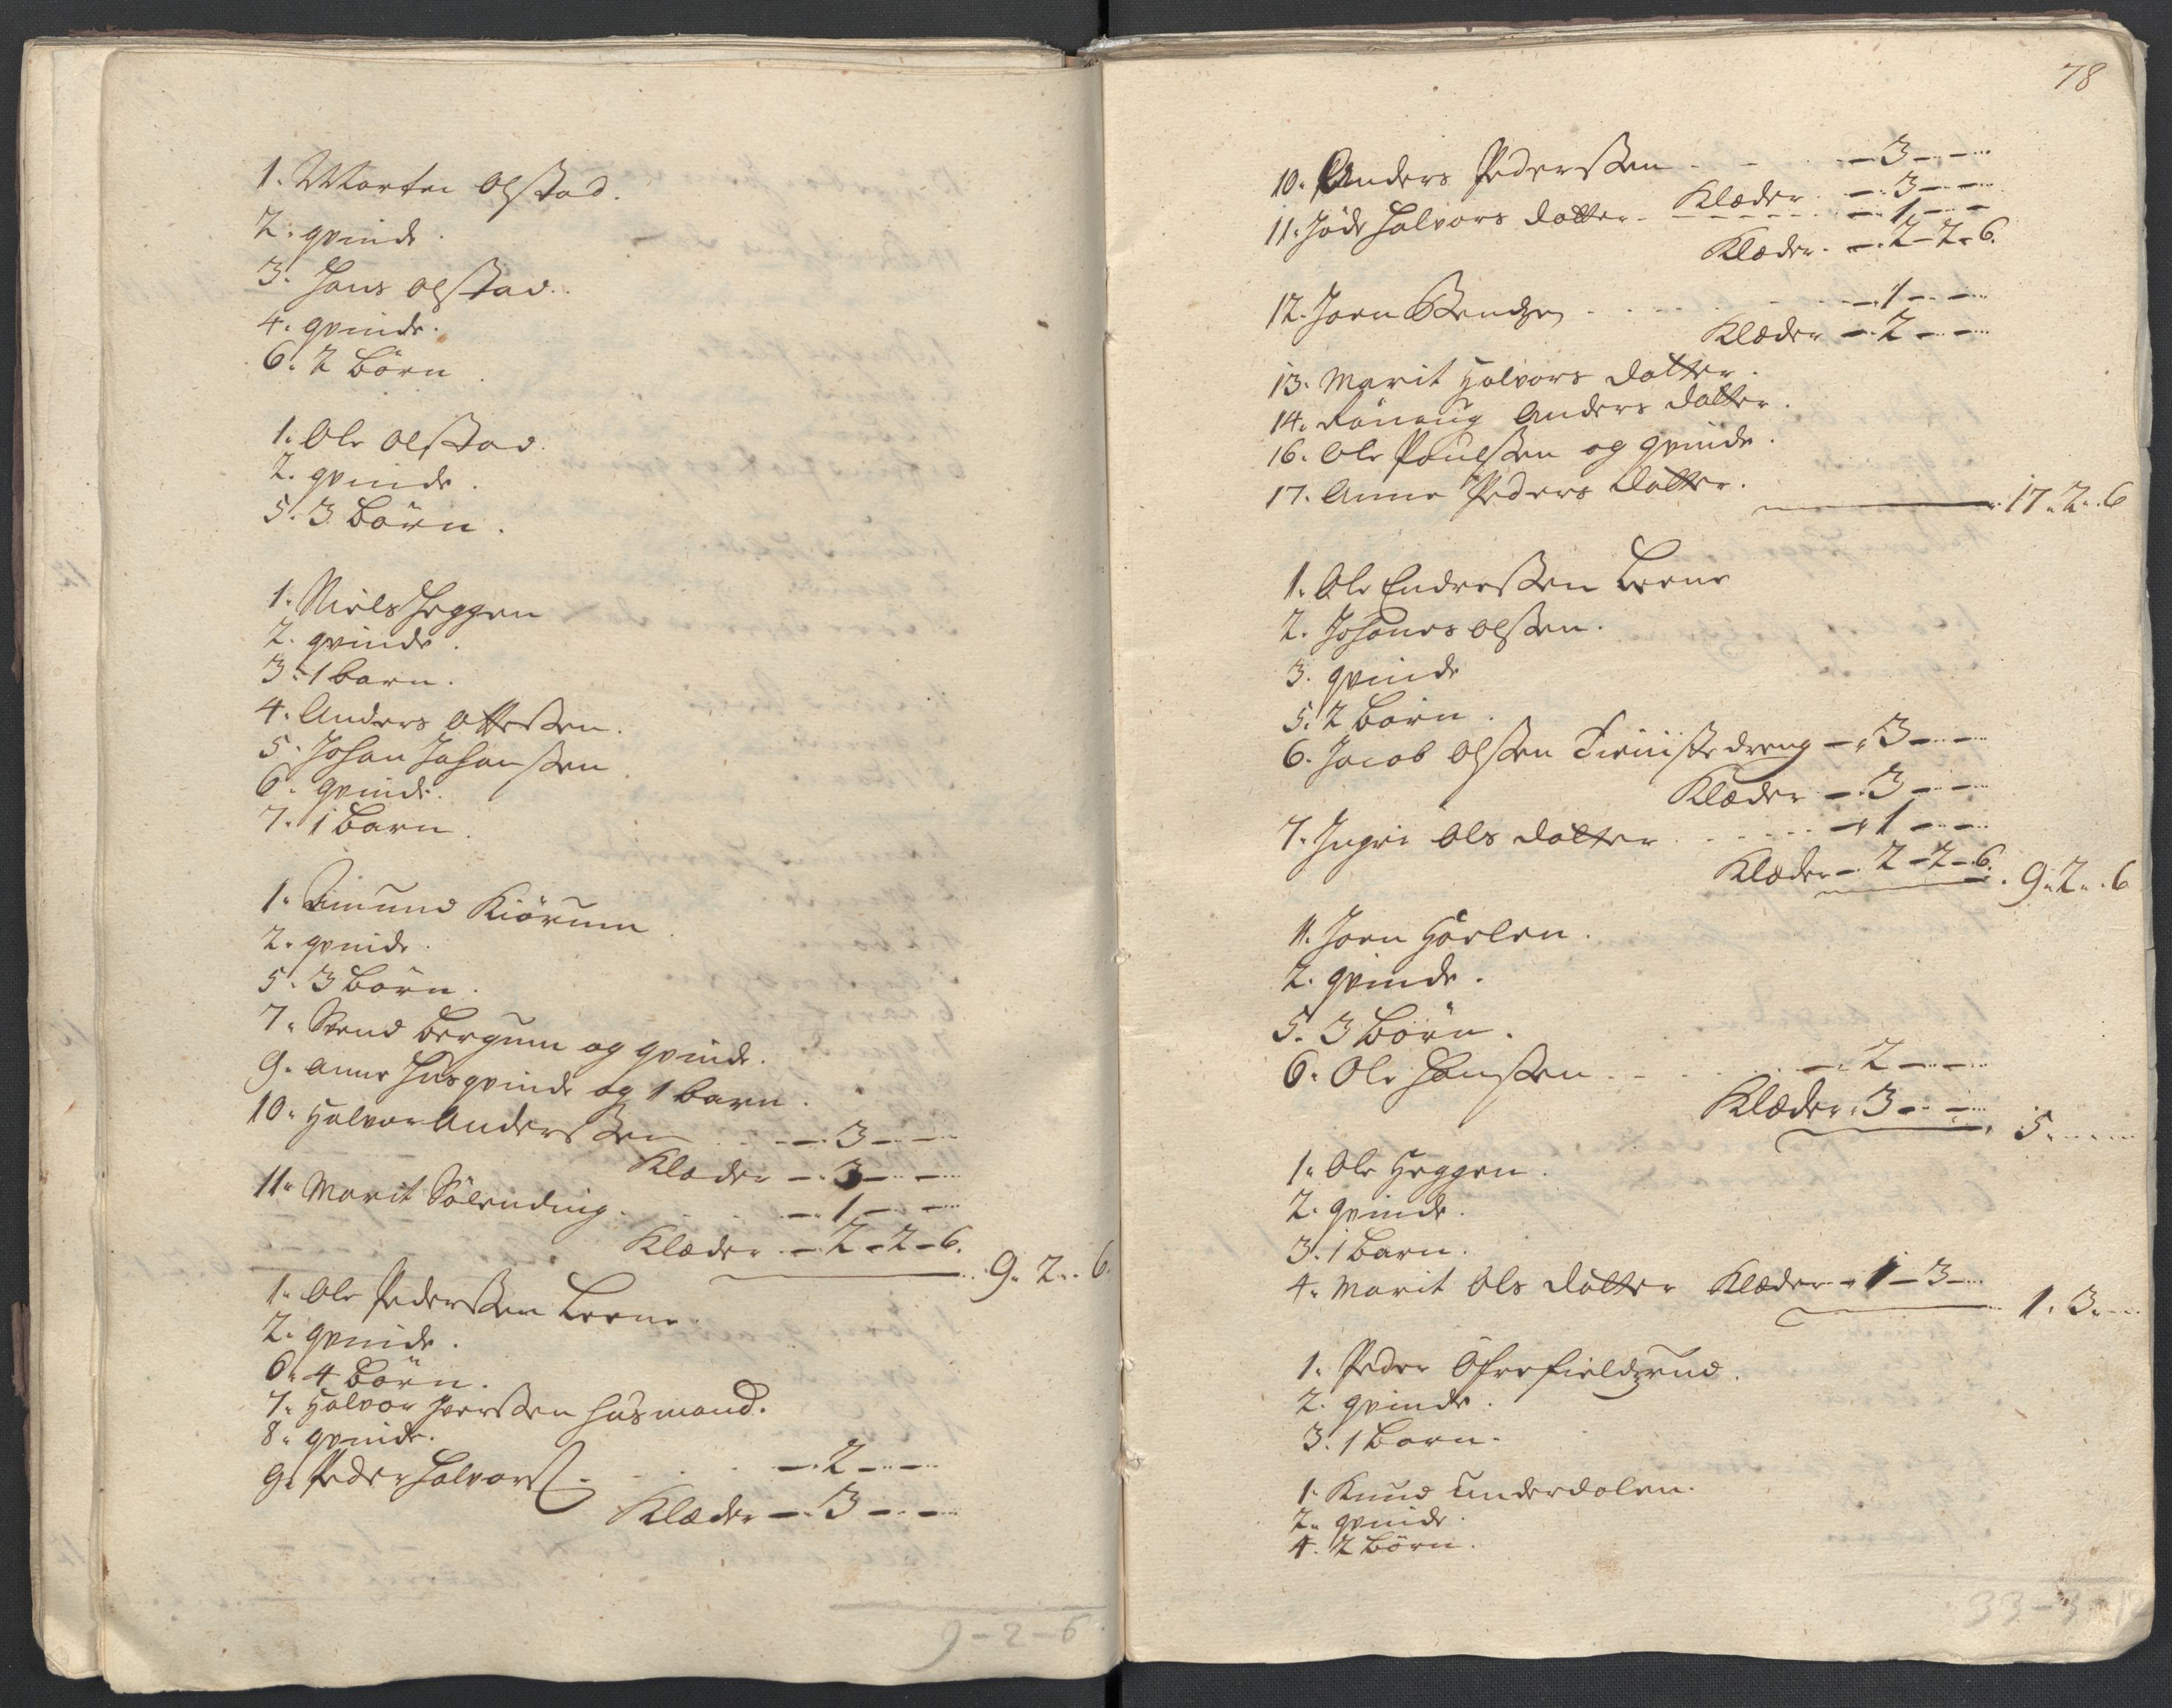 1. Morten Olstad.
2. qvinde.
3. Hans Olstad.
4. qvinde.
6. 2 Börn.
1. Ole Olstad.
2. qvinde.
5. 3 Börn.
1. Niels Heggen
2. qvinde.
3. 1 barn.
4. Anders Ottessen.
5. Johan Johanssen
6. qvinde.
7. 1 Barn.
1. Kiörum
2. qvinde.
5. 3 Börn.
7. Svend Bergum og qvinde.
9. Anne Husqvinde og 1 barn.
10. Halvor Anderssen - - 3 - -
Klæder - 3 - -
11. Marit - - 1 - -
Klæder - 2 - 2 - 6.
9. 2. 6.
1. Ole Pederssen Leene.
2. qvinde.
6. 4 Börn.
7. Halvor Iverssen Husmand.
8. qvinde.
9. Peder Halvors. - - 2 - -
Klæder - 3 - -
9-2-6
78
10. Anders Pederssen - - 3 - -
Klæder - 3 - -
11. Halvors datter - - 1 - -
Klæder - 2 - 2 - 6.
12. Joen - - 1 - -
Klæder - 2 - -
13. Marit Halvors datter.
14. Rönnug Anders datter.
16. Ole Poulssen og qvinde.
17. Anne Peders Datter.
17. 2. 6
1. Ole Endressen Leene
2. Johanes Olssen.
3. qvinde
5. 2 Börn.
6. Jacob Olssen Tieniste dreng - 3 - -
Klæder - 3 - -
7. Ingri Ols datter - - 1 - -
Klæder - 2 - 2 - 6.
9. 2. 6
1. Joen Hoelen.
2. qvinde.
5. 3 Börn.
6. Ole Hanssen - - 2 - -
Klæder. 3 - -
5. - -
1. Ole Heggen.
2. qvinde.
3. 1 Barn.
4. Marit Ols datter Klæder - 1 - 3 -
1. 3. -
1. Peder
2. qvinde.
3. 1 Barn.
1. Knud Underdalen.
2. qvinde.
4. 2 Börn.
33-3-12